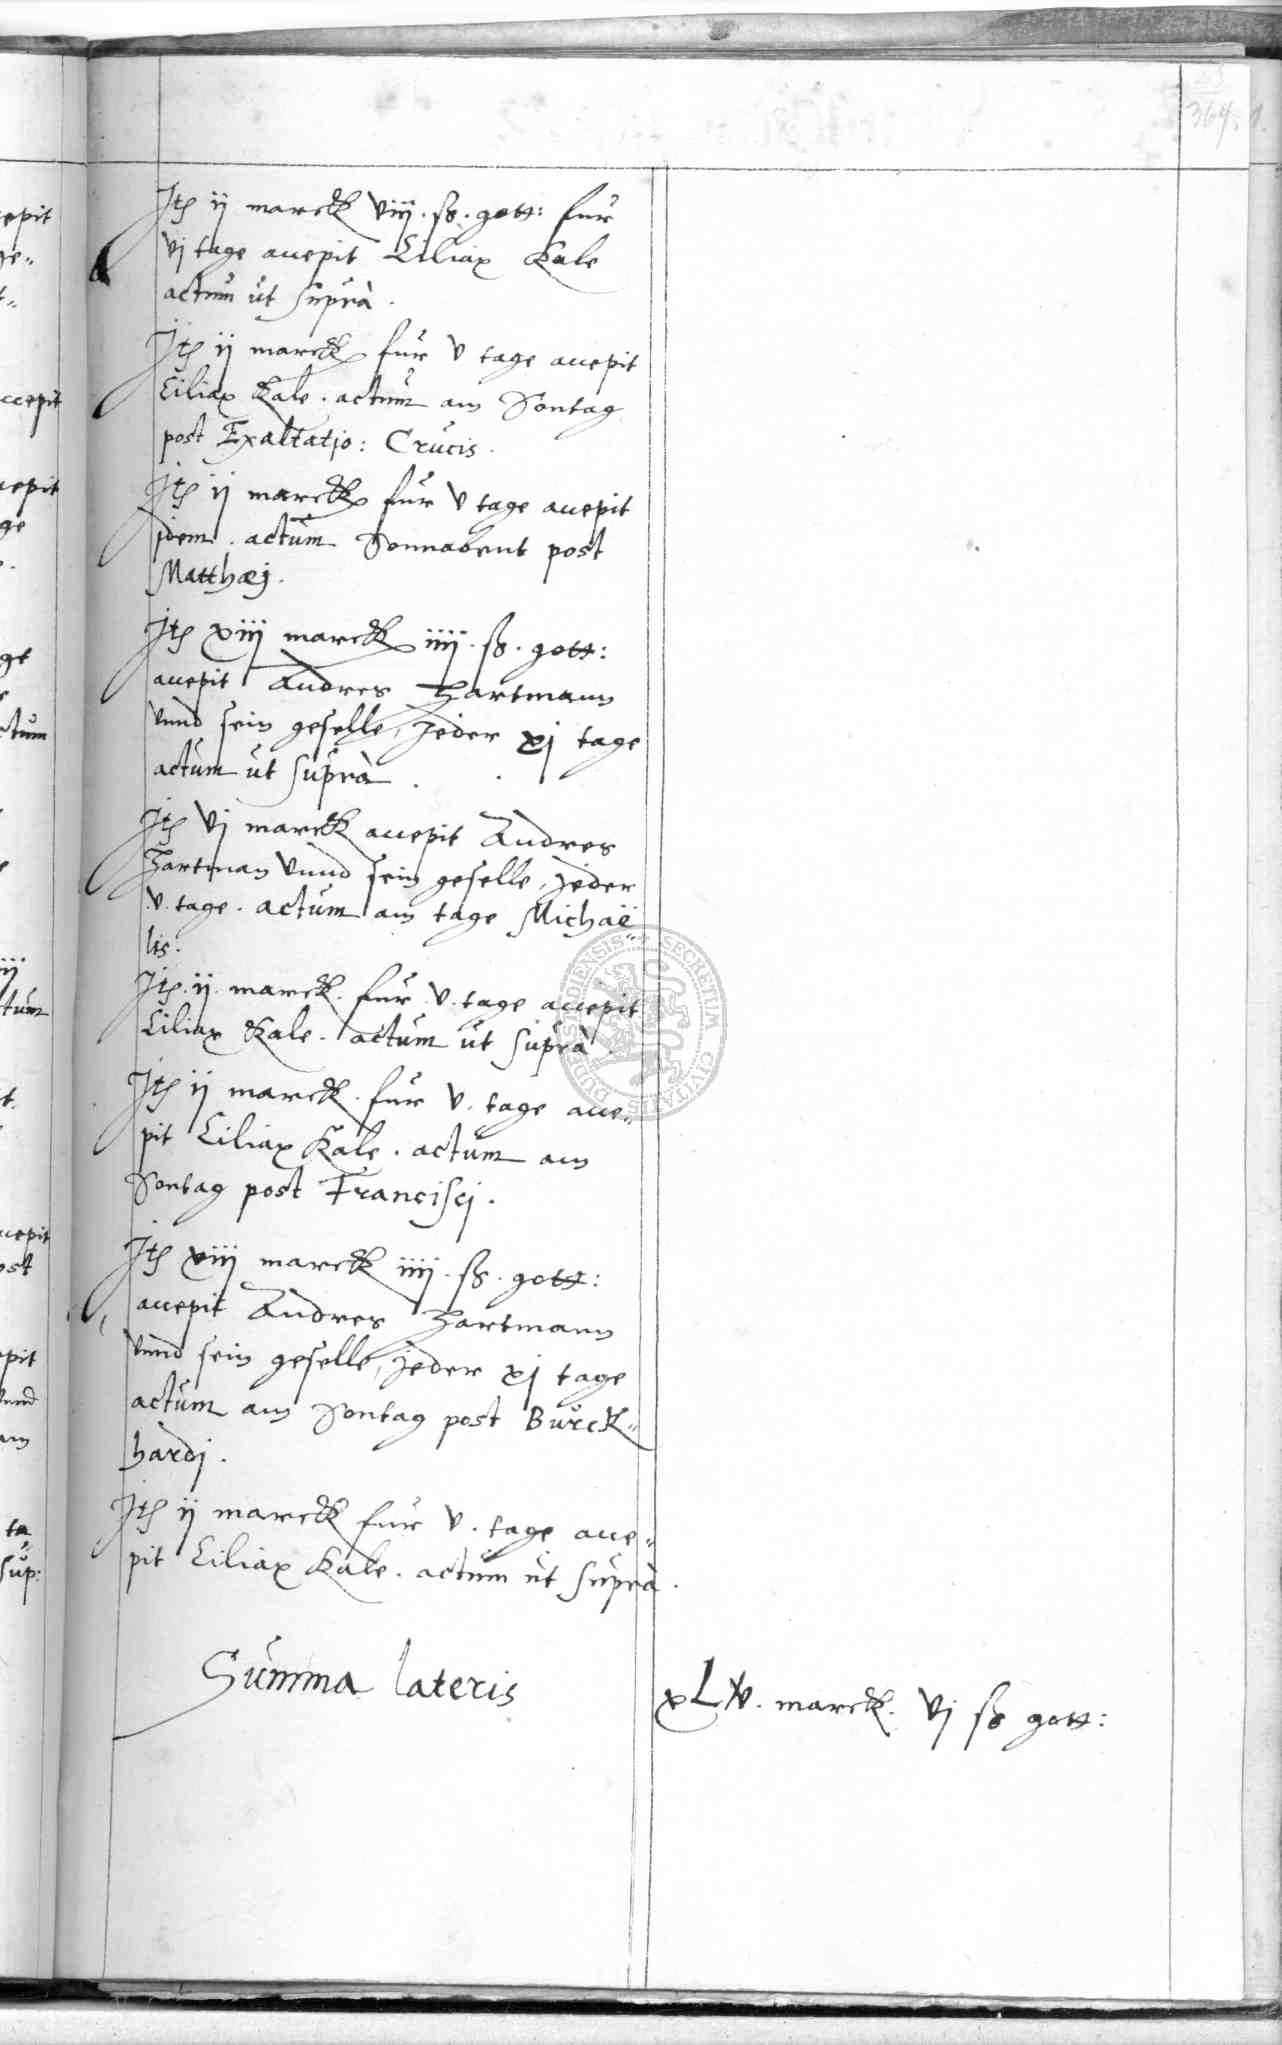 364. 1.
Itē ij marck viij. ß. gott: fur
vj tage accepit Ciliax Kale
actum ut suprà.
Itē ij marck fur v tage accepit
Ciliax Kale. actum am Sontag
post Exaltatio: Crucis.
Itē ij marck fur v tage accepit
jdem. actum Sonnabent post
Matthæj.
Itē xiij marck iiij. ß. gott:
accepit Andres Hartmann
vnnd sein geselle, jeder xj tage
actum ut suprà.
Itē vj marck accepit Andres
Hartman vnnd sein geselle, jeder
v. tage. actum am tage Michaë„
lis.
Itē. ij. marck. fur. v. tage accepit
Ciliax Kale. actum ut suprà.
Itē ij marck. fur v. tage acce„
pit Ciliax Kale. actum am
Sontag post Francisci.
Itē xiij marck iiij. ß. gott:
accepit Andres Hartmann
vnnd sein geselle, jeder xj tage
actum am Sontag post Burck„
hardj.
Itē ij marck fur v. tage acce„
pit Ciliax Kale. actum ut suprà.
Summa lateris
xLv. marck. vj ß gott:
SECRETUM CIVITATIS BUDESSIDIENSIS